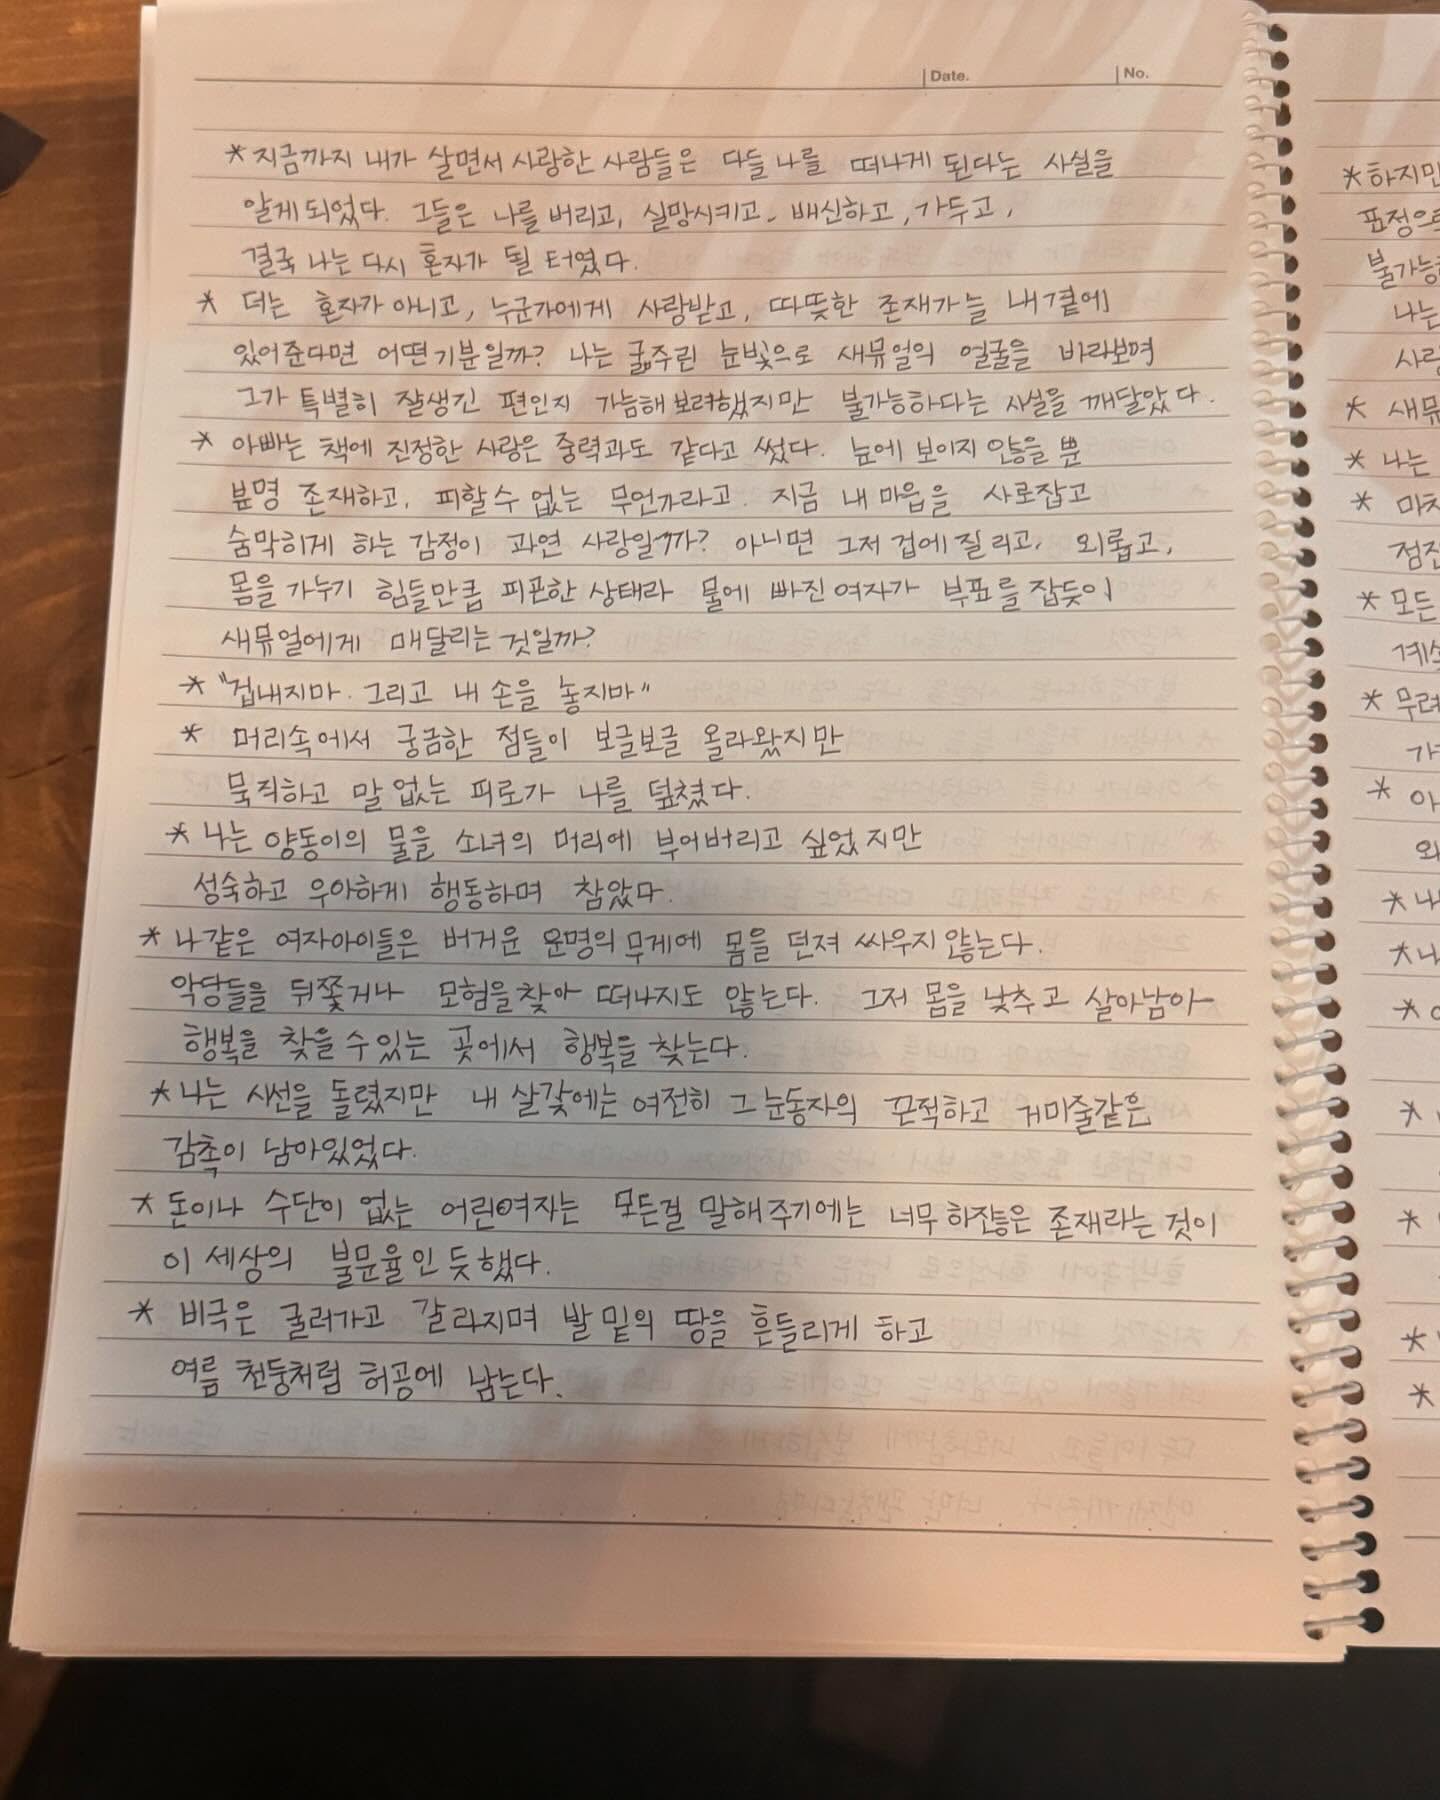 Date.
No.
* 지금까지 내가 살면서 사랑한 사람들은 다들 나를 떠나게 된다는 사실을
알게 되었다. 그들은 나를 버리고, 실망시키고, 배신하고, 가두고,
결국 나는 다시 혼자가 될 터였다.
* 더는 혼자가 아니고, 누군가에게 사랑받고, 따뜻한 존재가 늘 내 곁에
있어준다면 어떤 기분일까? 나는 굶주린 눈빛으로 새뮤얼의 얼굴을 바라보며
그가 특별히 잘생긴 편인지 가늠해보려했지만 불가능하다는 사실을 깨달았다.
* 아빠는 책에 진정한 사랑은 중력과도 같다고 썼다. 눈에 보이지 않을 뿐
분명 존재하고, 피할 수 없는 무언가라고. 지금 내 마음을 사로잡고
숨막히게 하는 감정이 과연 사랑일까? 아니면 그저 겁에 질리고, 외롭고,
몸을 가누기 힘들만큼 피곤한 상태라 물에 빠진 여자가 부표를 잡듯이
새뮤얼에게 매달리는 것일까?
* "겁내지마. 그리고 내 손을 놓지마"
* 머리속에서 궁금한 점들이 보글보글 올라왔지만
묵직하고 말 없는 피로가 나를 덮쳤다.
* 나는 양동이의 물을 소녀의 머리에 부어버리고 싶었지만
성숙하고 우아하게 행동하며 참았다.
* 나같은 여자아이들은 버거운 운명의 무게에 몸을 던져 싸우지 않는다.
악당들을 뒤쫓거나 모험을 찾아 떠나지도 않는다. 그저 몸을 낮추고 살아남아
행복을 찾을 수 있는 곳에서 행복을 찾는다.
* 나는 시선을 돌렸지만 내 살갗에는 여전히 그 눈동자의 끈적하고 거미줄같은
감촉이 남아있었다.
* 돈이나 수단이 없는 어린 여자는 모든걸 말해주기에는 너무 하찮은 존재라는 것이
이 세상의 불문율인 듯했다.
* 비극은 굴러가고 갈라지며 발 밑의 땅을 흔들리게 하고
여름 천둥처럼 허공에 남는다.
* 하지만
표정으로
불가능
나는
사랑
* 새뮤
* 나는
* 마치
점진
* 모든
계속
* 무려
* 아
* 나